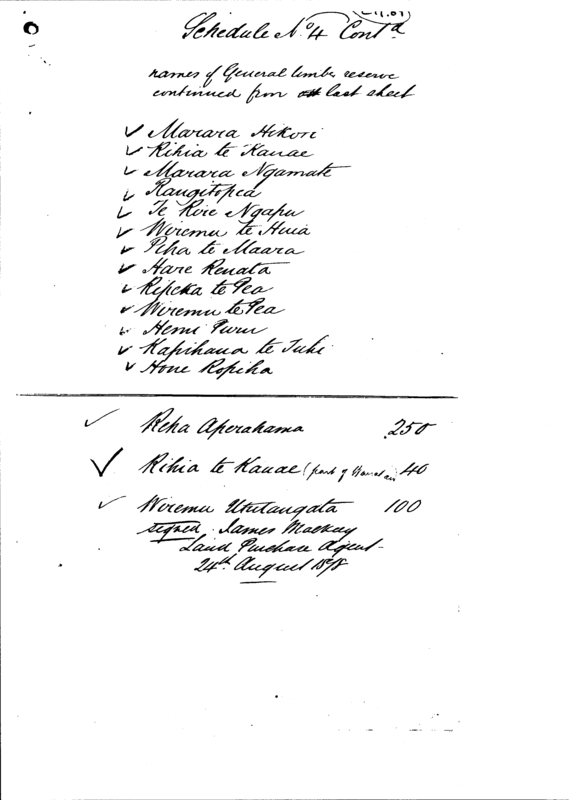 Schedule No. 4 Contd
names of General timber reserve
continued from last sheet
Marara Hikori
Rihia te Kauae
Marara Ngamate
Rangitopea
Te Roie Ngapu
Wiremu te Huia
Piha te Maara
Hare Renata
Ripeka te Pea
Wiremu te Pea
Hemi Puru
Kapihana te Tuhi
Hone Ropiha
Reha Aperahama 250
Rihia te Kauae (part of 40
Wiremu Ututangata 100
signed. James Mackay
Land Purchase Agent
24th August 1878